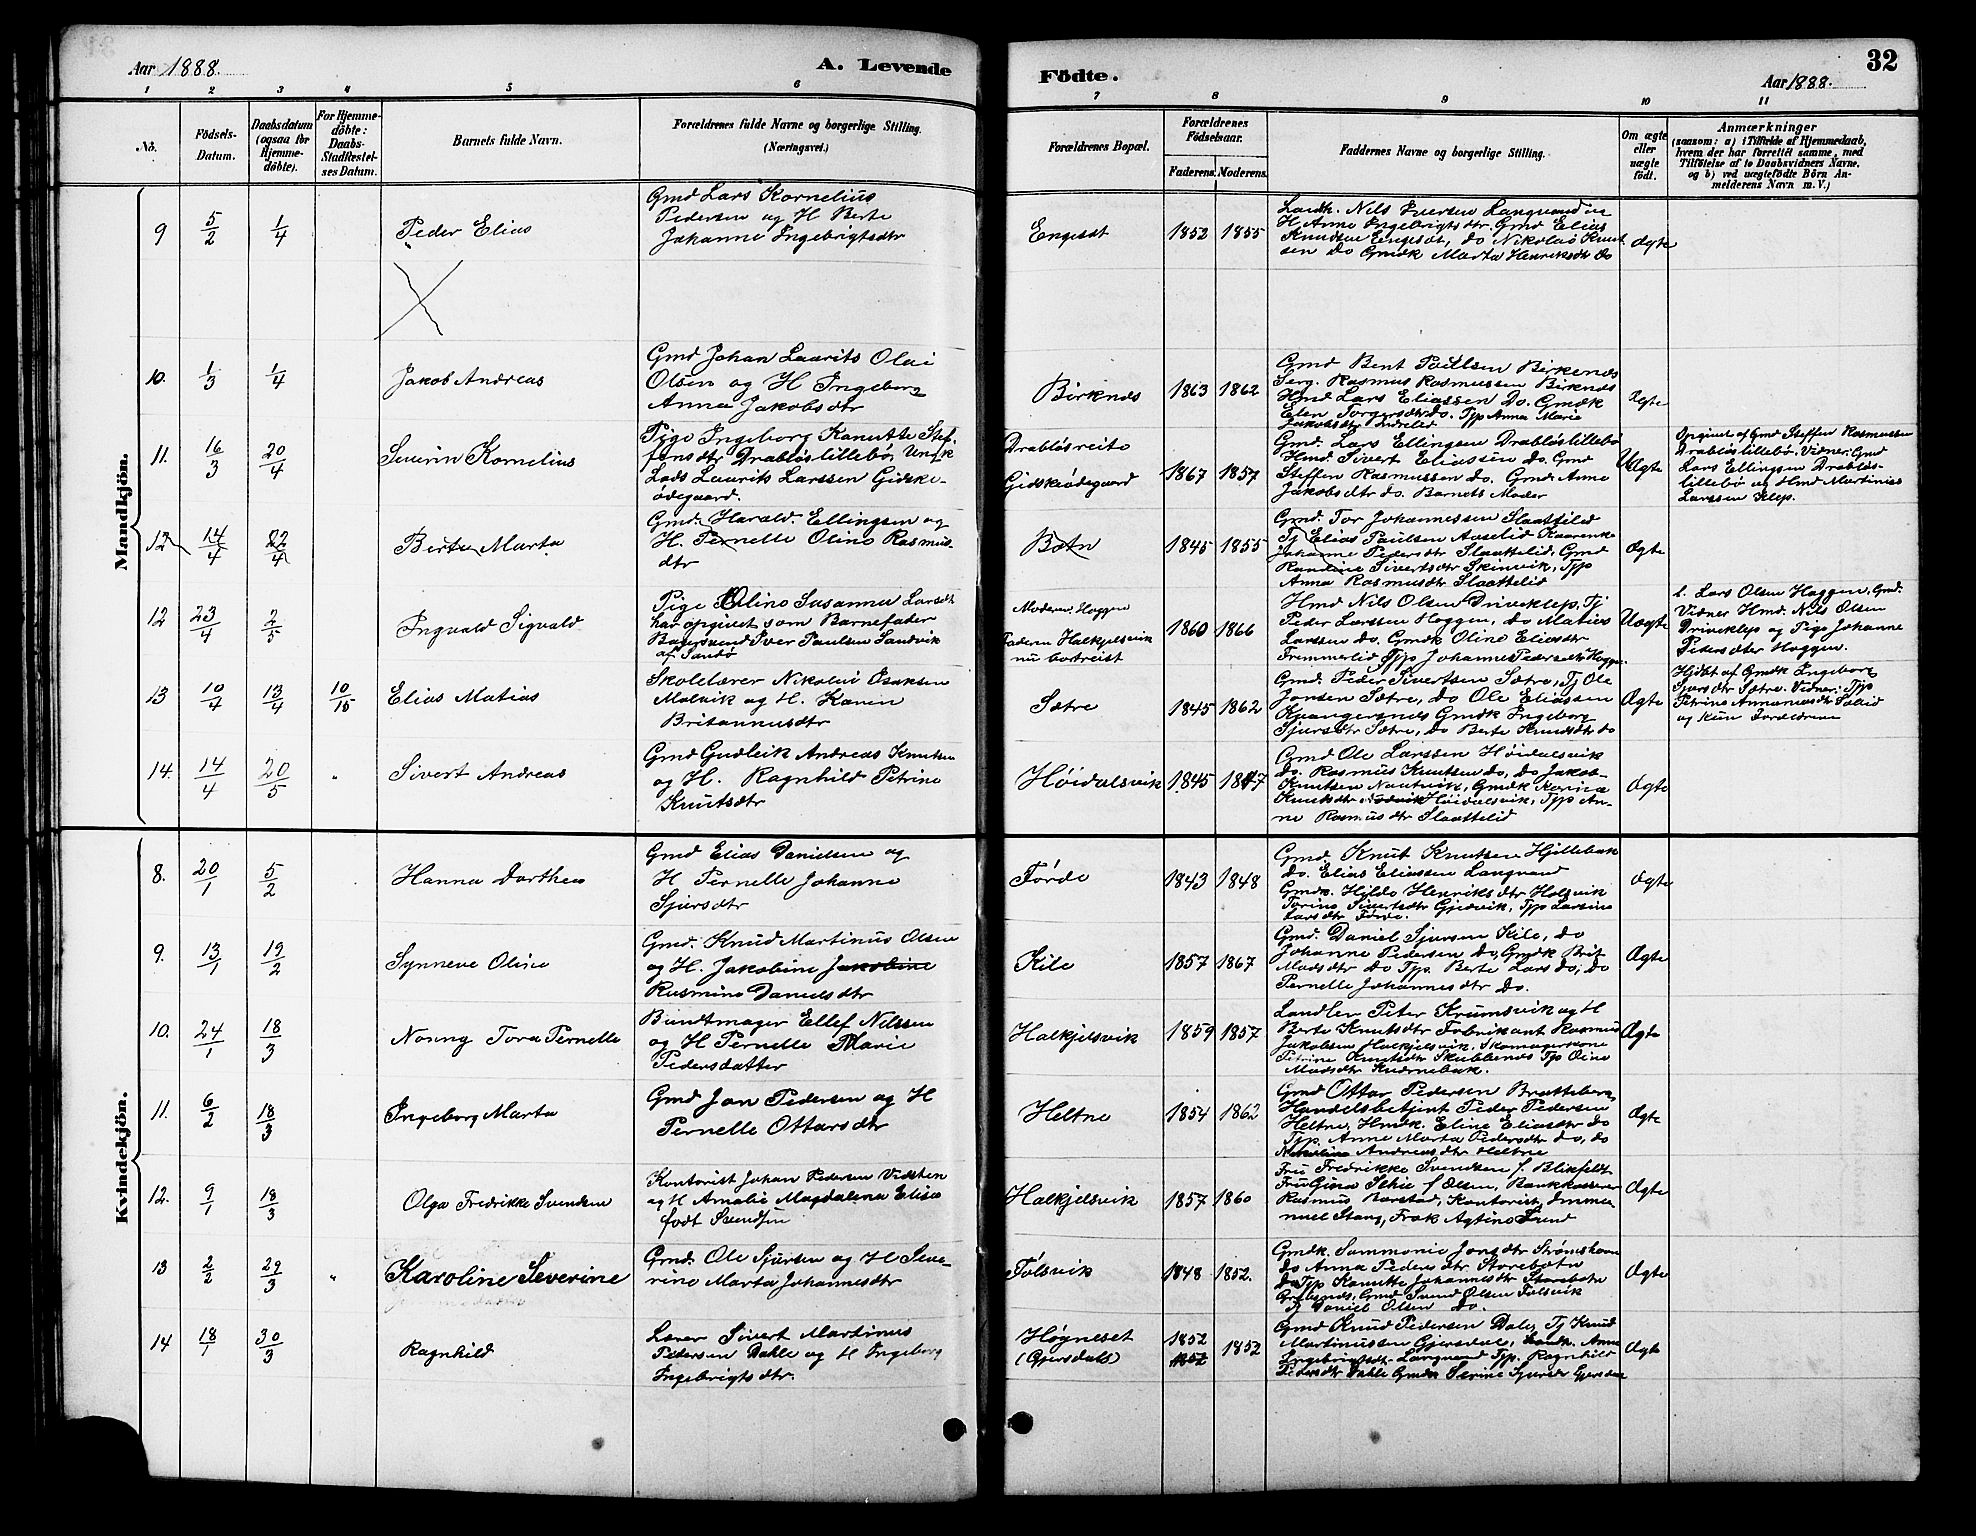 Aar 1888.
A. Levende
Födte.
32
Aar 1888.
1 2 3 4 5 6 7 8 9 10 11
No.
Födsels-
Datum.
Daabsdatum
(ogsaa for
Hjemme-
döbte).
For Hjemme-
döbte:
Daabs-
Stadfæstel-
ses Datum.
Barnets fulde Navn.
Forældrenes fulde Navne og borgerlige Stilling.
(Næringsvei.)
Forældrenes Bopæl.
Forældrenes
Födselsaar.
Faderens. Moderens.
Faddernes Navne og borgerlige Stilling.
Om ægte
eller
uægte
födt.
Anmærkninger
(saasom: a) i Tilfælde af Hjemmedaab,
hvem der har forrettet samme, med
Tilföielse af to Daabsvidners Navne,
og b) ved uægtefödte Börn An-
melderens Navn m. V.)
Mandkjön.
9 5/2 1/4 Peder Elias
Gmd Lars Kornelius
Pedersen og H Berte
Johanne Ingebrigtsdtr
Engeset 1852 1855
Landh. Nils Iversen Langvand og
H Anne Ingebrigtsdtr. Gmd Elias
Knudsen Engeset, do Nikolai Knut
sen do Gmdk Marta Henriksdtr do
Ægte
10. 1/3 1/4 Jakob Andreas
Gmd Johan Laurits Olai
Olsen og H Ingeborg
Anna Jakobsdtr
Birknes 1863 1862
Gmd Bent Paulsen Birkenes
Serg. Rasmus Rasmussen Birknes
Hmd Lars Eliassen do. Gmdk
Elen Torgersdtr do. Tjp Anna Marie
Jakobsdtr Indrelid
Ægte
11. 16/3 20/4 Severin Kornelius
Pige Ingeborg Kanutte Stef-
fensdtr Drabløslillebø, Ungk
Lods Laurits Larssen Gidske-
ødegaard.
Drabløsreite
Gidskeødegaard 1867 1857
Gmd. Lars Ellingsen Drabløslillebø
Hmd Sivert Eliassen do. Gmd
Steffen Rasmussen do. Gmd. Anne
Jakobsdtr do. Barnets Moder
Uægte
Opgivet af Gmd Steffen Rasmussen
Drabløslillebø. Vidner: Gmd
Lars Ellingsen Drabløs-
lillebø og Hmd Martinius
Larssen
12 14/4 22/4 Berte Marta
Gmd. Harald. Ellingsen og
H. Pernelle Oline Rasmus-
dtr
Botn 1845 1855
Gmd. Tor Johannessen Slaattelid
Tj Elias Paulsen Aaselid Kaarenke
Johanne Pedersdtr Slaattelid, Gmd
Randine Sivertsdtr Skinvik, Tjp
Anna Rasmusdtr Slaattelid
Ægte
12 23/4 2/5 Ingvald Sigvald
Pige Oline Susanna Larsdtr
har opgivet som Barnefader
Bagersvend Iver Paulsen Sandvik
af Sandø
Moderen: Haggen
Faderen Halkjelsvik
nu bortreist 1860 1866
Hmd Nils Olsen Driveklep, Tj
Peder Larssen Haggen, do Matias
Larssen do. Gmdk Oline Eliasdtr
Fremmerlid Tjp Johanne Pedersdtr Haggen
Uægte
L. Lars Olsen Haggen, Gmd.
Vidner Hmd. Nils Olsen
Driveklep og Pige Johanne
Peters dter Haggen.
13 10/4 13/4 10/15 Elias Matias
Skolelærer Nikolai Isaksen
Malvik og H. Karen
Britannusdtr
Sætre 1845 1862
Gmd. Peder Sivertsen Sætre, Tj Ole
Jonsen Sætre, do Ole Eliassen
Kjeangersnes Gmdk Ingeborg
Sjursdtr Sætre, do Berte Knudsdtr do
Ægte
Hjdøbt af Gmdk Ingeborg
Sjursdtr Sætre. Vidner: Tjp
Petrine Annaniasdtr
og kun Forældrene
14. 14/4 20/5 " Sivert Andreas
Gmd Gudleik Andreas Knutsen
og H. Ragnhild Petrine
Knutsdtr
Høidalsvik 1845 1847
Gmd Ole Larssen Høidalsvik
do. Rasmus Knutsen do, do Jakob
Knutsen Nautvik, Gmdk Karine
Knutsdtr Høidalsvik, Tjp An-
ne Rasmusdtr Slaattelid
Ægte
Kvindekjön.
8. 20/1 5/2 Hanna Dorthea
Gmd Elias Danielsen og
H Pernelle Johanne
Sjursdtr
Førde 1843 1848
Gmd. Knut Knutsen Hjellebak
do. Elias Eliassen Langvand
Gmdk. Hilde Henriksdtr Halsvik
Torine Sivertsdtr Gjedvik, Tjp Larsine
Larsdtr Førde.
Ægte
9. 13/1 19/2 Synneve Oline
Gmd. Knud Martinus Olsen
og H. Jakobine Jakobine
Rasmine Danielsdtr
Kile 1857 1867
Gmd. Daniel Sjursen Kile, do
Johanne Pedersen do, Gmdk Brit
Madsdtr do Tjp. Berte Lars do, do
Pernelle Johannesdtr do.
Ægte
10. 24/1 18/3 Nonny Tora Pernelle
Bundtmager Ellef Nilssen
og H Pernelle Marie
Pedersdatter
Halkjelsvik 1859 1857
Landler Peter Krumsvik og H
Berte Knutsdtr Fabrikant Rasmus
Jakobsen Halkjelsvik, Skomagerkone
Petrine Knutsdtr Skubbenes Tjp Oline
Madsdtr
Ægte
11. 6/2 18/3 Ingeborg Marta
Gmd Jon Pedersen og H
Pernelle Ottarsdtr
Heltne 1854 1862
Gmd Ottar Pedersen Bratteberg
Handelsbetjent Peder Pedersen
Heltne, Hmdk. Eline Eliasdtr do
Tjp. Anne Marta Pedersdtr do, do
Nikoline Andreasdtr Heltne
Ægte
12. 9/1 18/3 Olga Fredrikke Svendsen
Kontorist Johan Pedersen Vidsten
og H Amalie Magdalena Elise
født Svendsen
Halkjelsvik 1857 1860
Fru Fredrikke Svendsen f. Blikfeldt
Fru Gina f Olsen, Bankkasserer
Rasmus Barstad, Kontorist Imma
nuel Stang, Frøk Agtine Lund
Ægte
13 2/2 29/3 " Karoline Severine
Gmd. Ole Sjursen og H Seve-
rine Marta Johannesdtr
Følsvik 1848 1852.
Gmdk. Sammonie Jonsdtr Strømshavn
do Anna Pedersdtr. Storebotn
do Tjp Kanutte Johannesdtr Storebotn
Grebsnes, Gmd Svend Olsen Følsvik
Tj Daniel Olsen do.
Ægte
14 18/1 30/3 Ragnhild
Lærer Sivert Martinus
Pedersen Dahle og H Ingeborg
Ingebrigtsdtr.
Høgneset
(Gjersdals) 1852 1852
1852
Gmd Knud Pedersen Dale, Tj Knud
Martinussen Gjersdale, Landk. Anne
Ingebrigtsdtr Langvand Tjp. Ragnhild
Pedersdtr Dahle Gmdk Serine Sjursdtr Gjersdal
Ægte